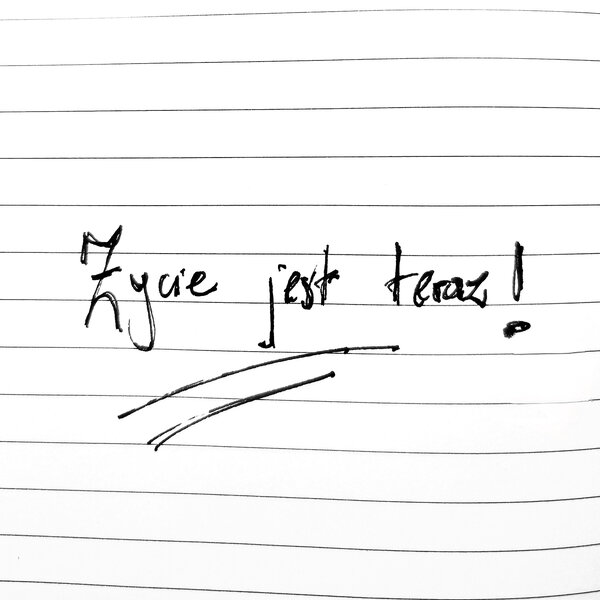 Życie jest teraz!